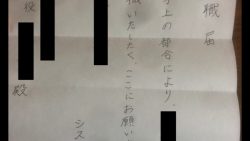 職届
上の都合により、
職いたしたく、ここにお願い
シス
役
殿